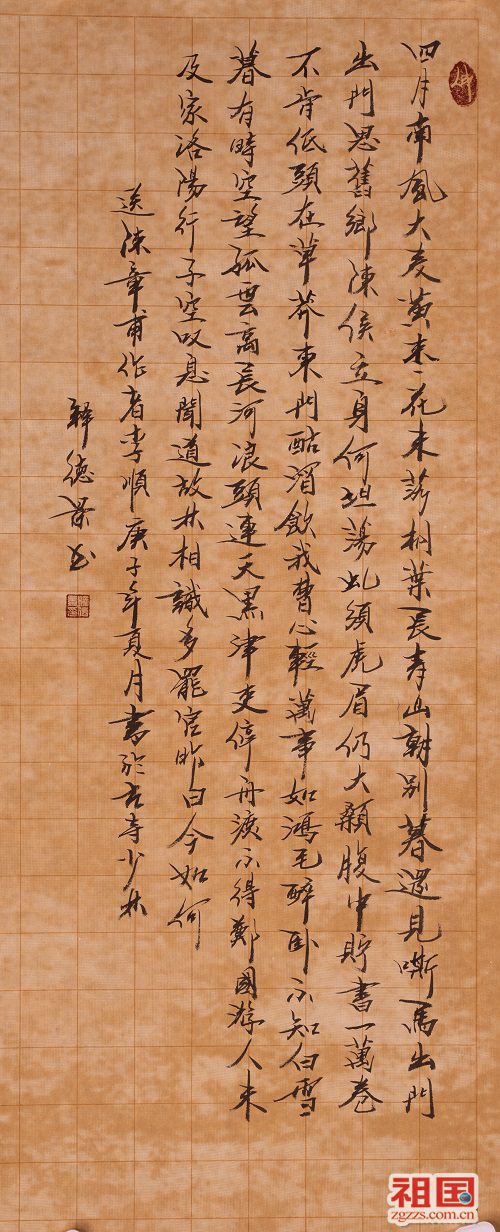 四月南風大麦黄枣花未落桐葉長青山朝别暮還見嘶馬出門
出門思舊鄉陳侯立身何坦蕩虬須虎眉仍大顙腹中貯書一萬卷
不肯低頭在草莽東門酤酒飲我曹心輕萬事如鴻毛醉卧不知白雪
暮有時空望孤雲高長河浪頭連天黑津吏停舟渡不得鄭國游人未
及家洛陽行子空叹息聞道故林相識多罷官昨日今如何
送陳章甫作者李順庚子年夏月書於古寺少林
釋德
祖国
zgzzs.com.cn